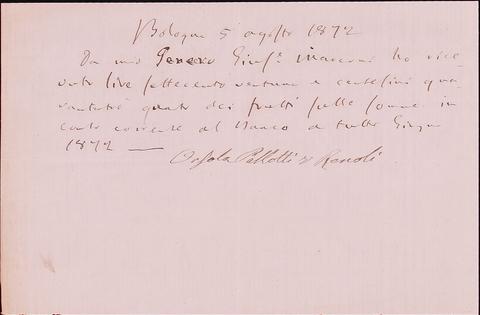 Bologna 5 agosto 1872
Da mio Genero Giuse. Marconi ho rice-
vuto lire settecento ventuna e centesimi qua-
rantatrè quota dei frutti sulle somme in
conto corrente al Banco a tutto Giugno
1872 —
Orsola Pellotti V Renoli